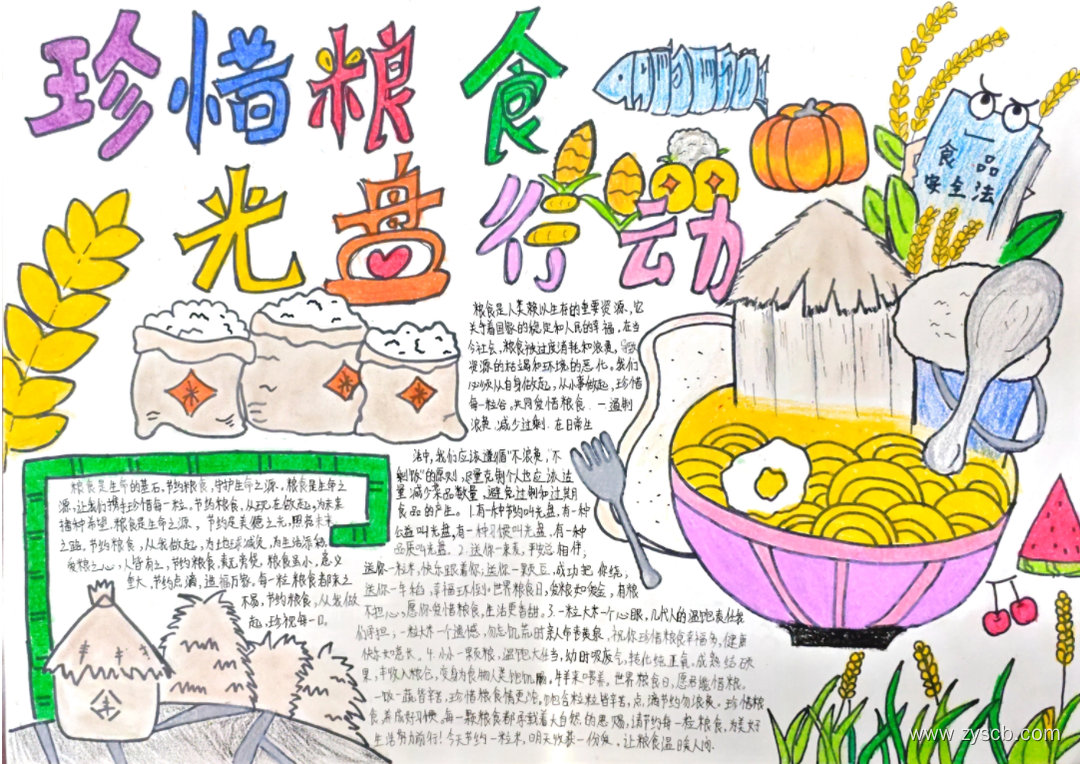 珍惜粮食
光盘行动
食品
安全法
粮食是人类赖以生存的重要资源，它
关乎着国家的稳定和人民的幸福，在当
今社会，粮食被过度消耗和浪费，导致
资源的枯竭和环境的恶化。我们
必须从自身做起，从小事做起，珍惜
每一粒谷。共同爱惜粮食．一．遏制
浪费．减少过剩．在日常生
活中，我们应该遵循"不浪费，不
剩饭"的原则，尽量克制个人也应该适
量减少菜品数量，避免过剩和过期
食品的产生。1.有一种节约叫光盘，有一种
公益叫光盘，有一种习惯叫光盘，有一种
品质叫光盘。2.送你一束麦，平安总相伴，
送你一粒米，快乐跟着你，送你一颗豆，成功把你绕，
送你一年稻，幸福环绕你，世界粮食日，爱粮如爱金，有粮
不担心，愿你爱惜粮食，生活更香甜。3.一粒大米一个心眼，几代人的温饱责任我
们承担；一粒大米一个遗憾，勿忘饥荒时亲人命丧黄泉，祝你珍惜粮食幸福多，健康
快乐如意长。4.小小一颗
果，丰收入粮仓，变身为食物人类
一饭一蔬皆辛苦，珍惜粮食情更浓。
食，养成好习惯，每一颗粮食都承载着大自然的恩赐，请节约每一粒粮食，为美好
生活努力前行！今天节约一粒米，明天收获一份爱，让粮食温暖人间．
粮食是生命的基石，节约粮食，守护生命之源。粮食是生命之
源，让我们携手珍惜每一粒。节约粮食，从现在做起，为未来
播种希望。粮食是生命之源，节约是美德之光，照亮未来
之路。节约粮食，从我做起，为地球减负，为生活添
爱粮之心，人皆有之，节约粮食，
重大，节约点滴，造福万家。每一粒粮食都来之
不易，节约粮食，从我做
起，珍视每一口。
www.zyscb.com